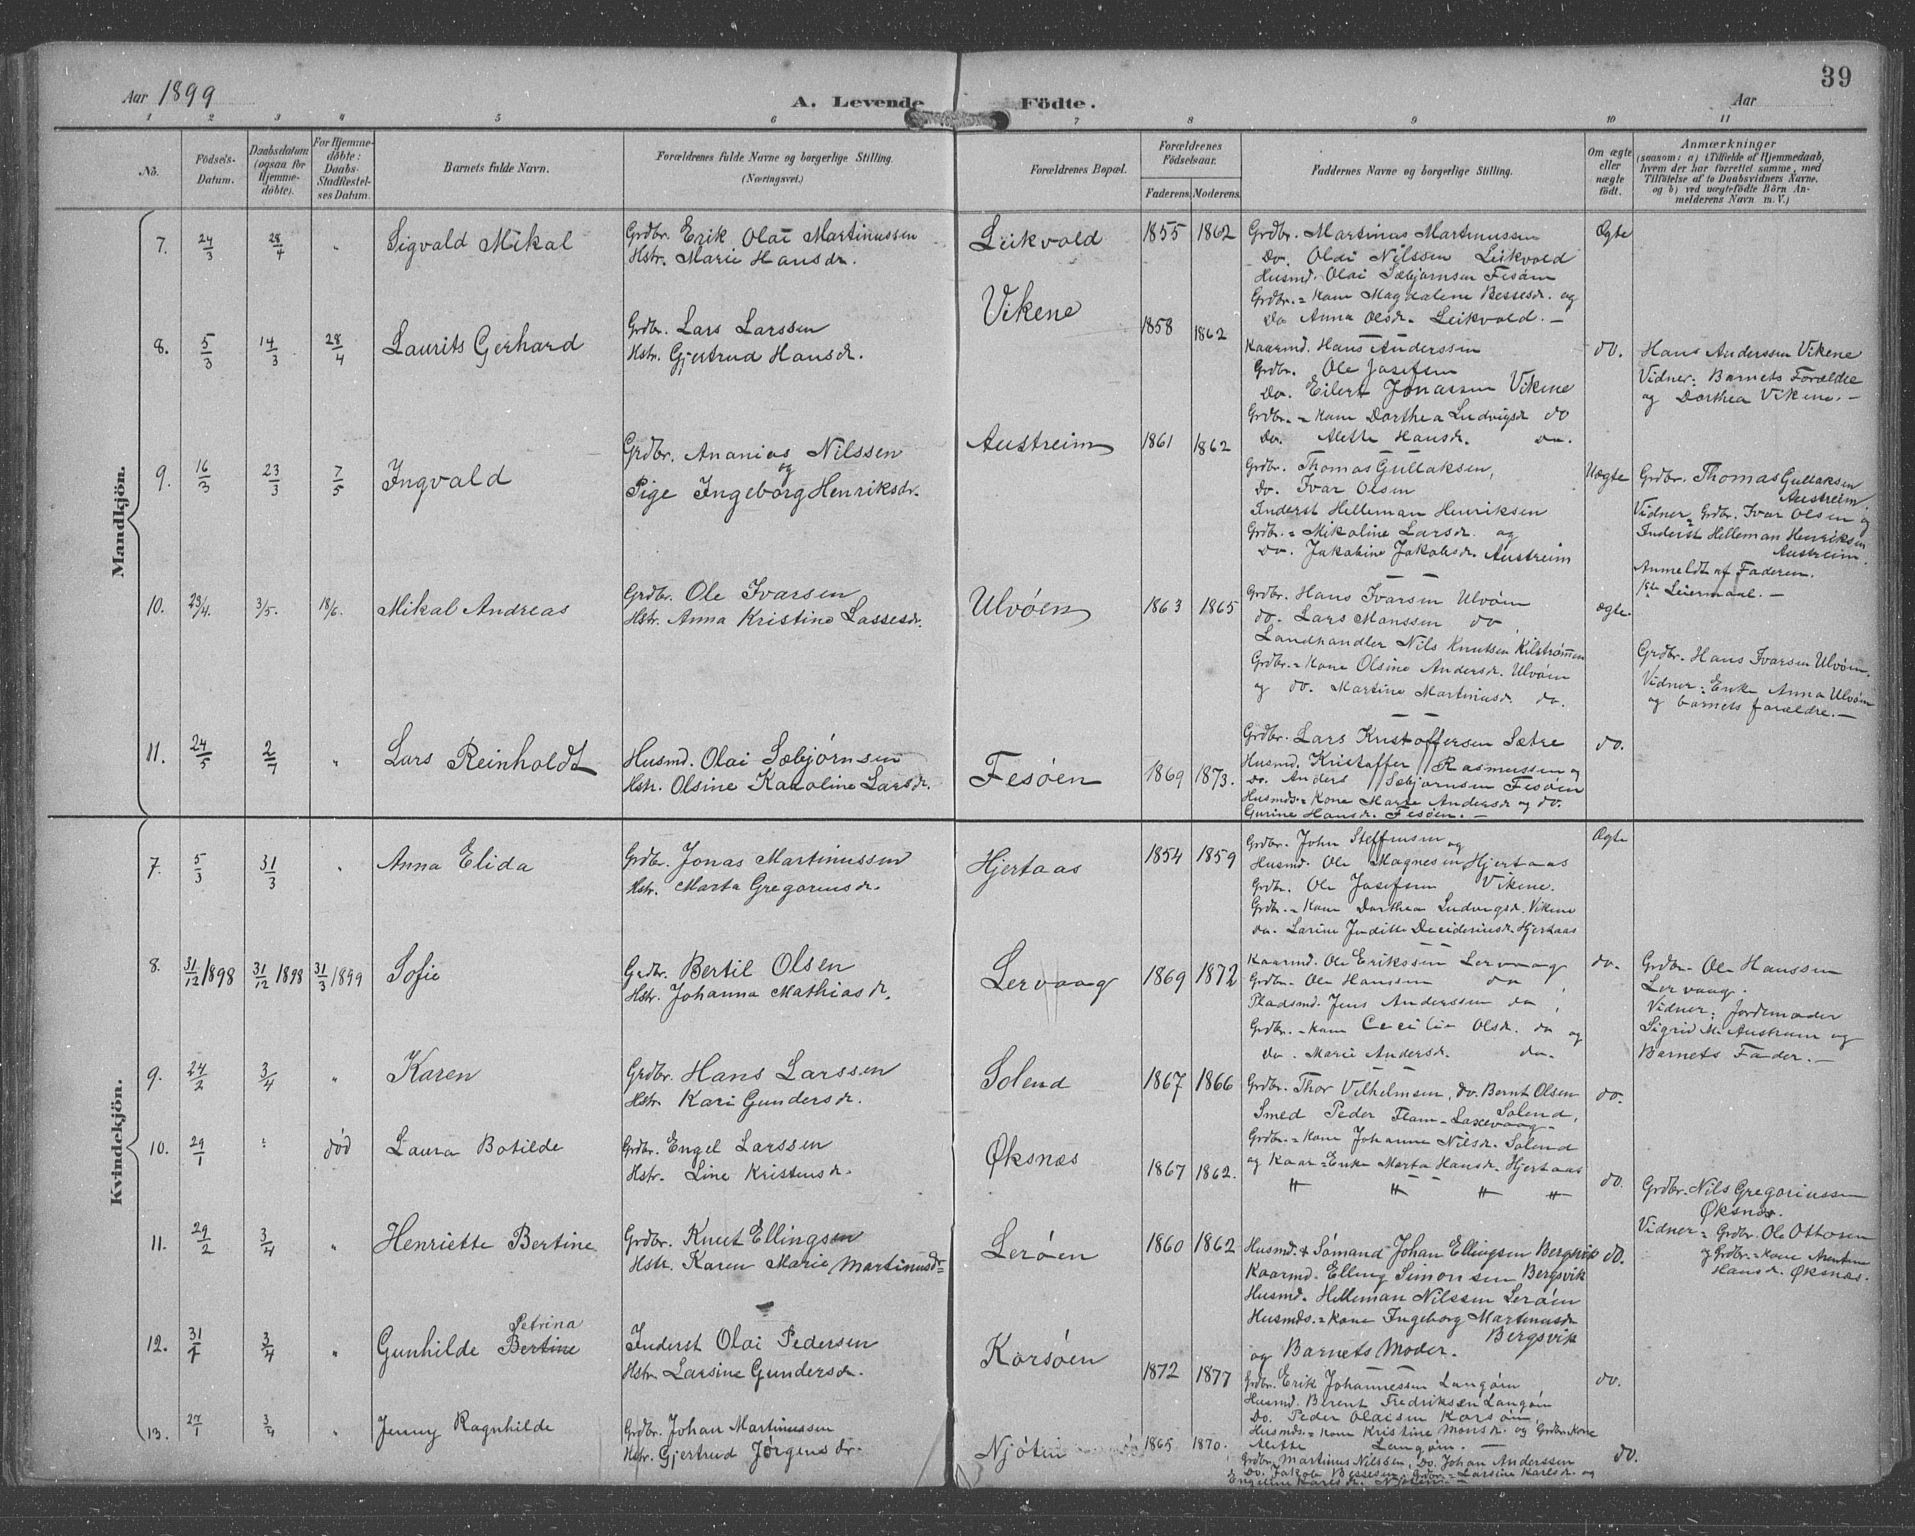 39
Aar 1899
A. Levende Födte.
Aar
1 2 3 4 5 6 7 8 9 10 11
No.
Födsels-Datum.
Daabsdatum (ogsaa for Hjemme-døbte).
For Hjemme-døbte: Daabs-StadRestel-ses Datum.
Barnets fulde Navn.
Forældrenes fulde Navne og borgerlige Stilling. (Næringsvei.)
Forældrenes Bopæl.
Forældrenes Födselsaar.
Faderens. Moderens.
Faddernes Navne og borgerlige Stilling.
Om ægte eller uægte födt.
Anmærkninger
(saasom: a) i Tilfælde af Hjemmedaab, hvem der har forrettet samme, med Tilføielse af to Daabsvidners Navne, og b) ved uægtefødte Börn An-melderens Navn m. V.)
Mandkjön.
7. 24/3 28/4 " Sigvald Mikal
Grdbr. Erik Olai Martinussen
Hstr. Marie Hansdr.
Leikvold 1855 1862
Grdbr. Martinus Martinussen
Do. Olai Nilssen Leikvold
Husmd. Olai Sæbjørnsen Fesøen
Grdbr.=Kone Magdalene Bessesdr. og
Do Anna Olsdr. Leikvold. —
Ægte
8. 5/3 14/3 28/4 Laurits Gerhard
Grdbr. Lars Larssen
Hstr. Gjertrud Hansdr.
Vikene 1858 1862
Kaarmd. Hans Anderssen
Grdbr. Ole Josefsen
Do. Eilert Jonassen Vikene
Grdbr.=Kone Dorthea Ludvigsdr do
Do. Alette Hansdr. do.
do.
Hans Anderssen Vikene
Vidner: Barnets Forældre
og Dorthea Vikene. —
9. 16/3 23/3 7/5 Ingvald
Grdbr. Ananias Nilssen
og
Pige Ingeborg Henriksdr.
Austreim 1861 1862
Grdbr. Thomas Gullaksen,
Do. Ivar Olsen
Inderst Helleman Henriksen
Grdbr.=Mikaline Larsdr. og
do. Jakobine Jakobsdr. Austreim
Uægte
Grdbr. Thomas Gullaksen
Austreim.
Vidner: Grdbr. Ivar Olsen og
Inderst Helleman Henriksen
Austreim.
Anmeldt af Faderen.
1ste Leiermaal. —
10. 23/4. 3/5. 18/6. Mikal Andreas
Grdbr. Ole Ivarsen
Hstr. Anna Kristine Lassesdr.
Ulvøen 1863 1865
Grdbr. Hans Ivarsen Ulvøen
do. Lars Monssen do,
Landhandler Nils Knutsen Kilstrømmen
Grdbr.=Kone Olsine Andersdr. Ulvøen
og do. Martine Martinusdr. do.
ægte.
Grdbr. Hans Ivarsen Ulvøen.
Vidner: Enke Anna Ulvøen
og barnets forældre. —
11. 24/5 2/7 " Lars Reinholdt
Husmd. Olai Sæbjørnsen
Hstr. Olsine Karoline Larsdr.
Fesøen 1869 1873.
Grdbr. Lars Kristoffersen Sætre
Husmd. Kristoffer Rasmussen og
Do. Anders Sæbjørnsen Fesøen
Husmds.=Kone Marte Andersdr og do.
Gurine Hansdr. Fesøen. —
do.
Kvindekjön.
7. 5/3 31/3 " Anna Elida
Grdbr. Jonas Martinussen
Hstr. Marta Gregoriusdr.
Hjertaas 1854 1859
Grdbr. John Steffensen og
Husmd. Ole Magnesen Hjertaas
Grdbr. Ole Josefsen Vikene.
Grdbr.=Kone Dorthea Ludvigsdr. Vikene
do. Larine Juditte Desideriusdr. Hjertaas
Ægte
8. 31/12 1898 31/12 1898 31/3 1899 Sofie
Grdbr. Bertil Olsen
Hstr. Johanna Mathiasdr.
Lervaag 1869 1872
Kaarmd. Ole Erikssen Lervaag
Grdbr. Ole Hanssen do,
Pladsmd. Jens Anderssen do,
Grdbr.=Kone Cecilie Olsdr. do og
do. Marie Andersdr. do.
do.
Grdbr. Ole Hanssen
Lervaag.
Vidner: Jordemoder
Sigrid M. Austreim og
Barnets Fader. —
9. 24/2 3/4 " Karen
Grdbr. Hans Larssen
Hstr. Kari Gundersdr.
Solend 1867 1866
Grdbr. Thor Vilhelmsen, do. Bernt Olsen
Solend,
Smed Peder Flam-Laxevaag-
Grdbr.=Kone Johanne Nilsdr. Solend
og Kaar=Enke Marta Hansdr. Hjertaas
do.
10. 29/1 " død Laura Botilde
Grdbr. Engel Larssen
Hstr. Line Kristensdr.
Øksnæs 1867 1862.
" " " "
do.
Grdbr. Nils Gregoriussen
Øksnæs.
Vidner = Grdbr. Ole Ottosen
og Grdbr.=Kone Arentine
Hansdr. Øksnæs.
11. 29/2 3/4 " Henriette Bertine
Grdbr. Knut Ellingsen
Hstr. Karen Marie Martinusdr
Lerøen 1860 1862
Husmd. & Sømand Johan Ellingsen Bergsvik
Kaarmd. Elling Simonsen Bergsvik
Husmd. Helleman Nilssen Lerøen
Husmds.=Kone Ingeborg Martinusdr
Bergsvik
og Barnets Moder.
do.
12. 31/1 3/4 " Gunhilde Bertine Petrina
Inderst Olai Pedersen
Hstr Larsine Gundersdr.
Korsøen 1872 1877
Grdbr. Erik Johannessen Langøen
Husmd. Berent Fredriksen Langøen
Do. Peder Olaisen Korsøen,
Husmds.=Kone Kristine Monsdr. og Grdbr. Kone
Alette Langøen. —
do.
13. 27/1 3/4 " Jenny Ragnhilde
Grdbr. Johan Martinussen
Hstr. Gjertrud Jørgensdr.
Njøten 1865 1870.
Grdbr. Martinus Nilssen, Do. Johan Anderssen
Do. Jakob Bessesen, Grdbr.=Larsine Karlsdr. og
Engeline Karlsdr. Njøten —
do.